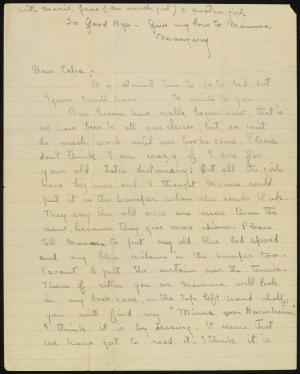 with Marie, Jane (the much girl) & another girl.
So Good Bye - Give my love to Mamma
Margery
Dear Papa,-
It is almost time to go to bed, but
I guess I will have to write to you.
Our lessons have really begun now, that is
we have been to all our classes but we can't
do much work until our books come. Please
don't think I am crazy if I ask for
your old Latin dictionary; but all the girls
have big ones and I thought Mamma could
put it in the hamper when she sends it up.
They say the old ones are nicer than the
new, because they give more idioms. Please
tell Mamma to put my old blue bed spread
and my blue curtains in the hamper too.
I want to put the curtains over the trunk.
Then if either you or Mamma will look
in my book case, in the top left hand shelf,
you will find my "Minna von Barnhelm"
I think it is by Lessing. It seems that
we have got to read it. I think it is